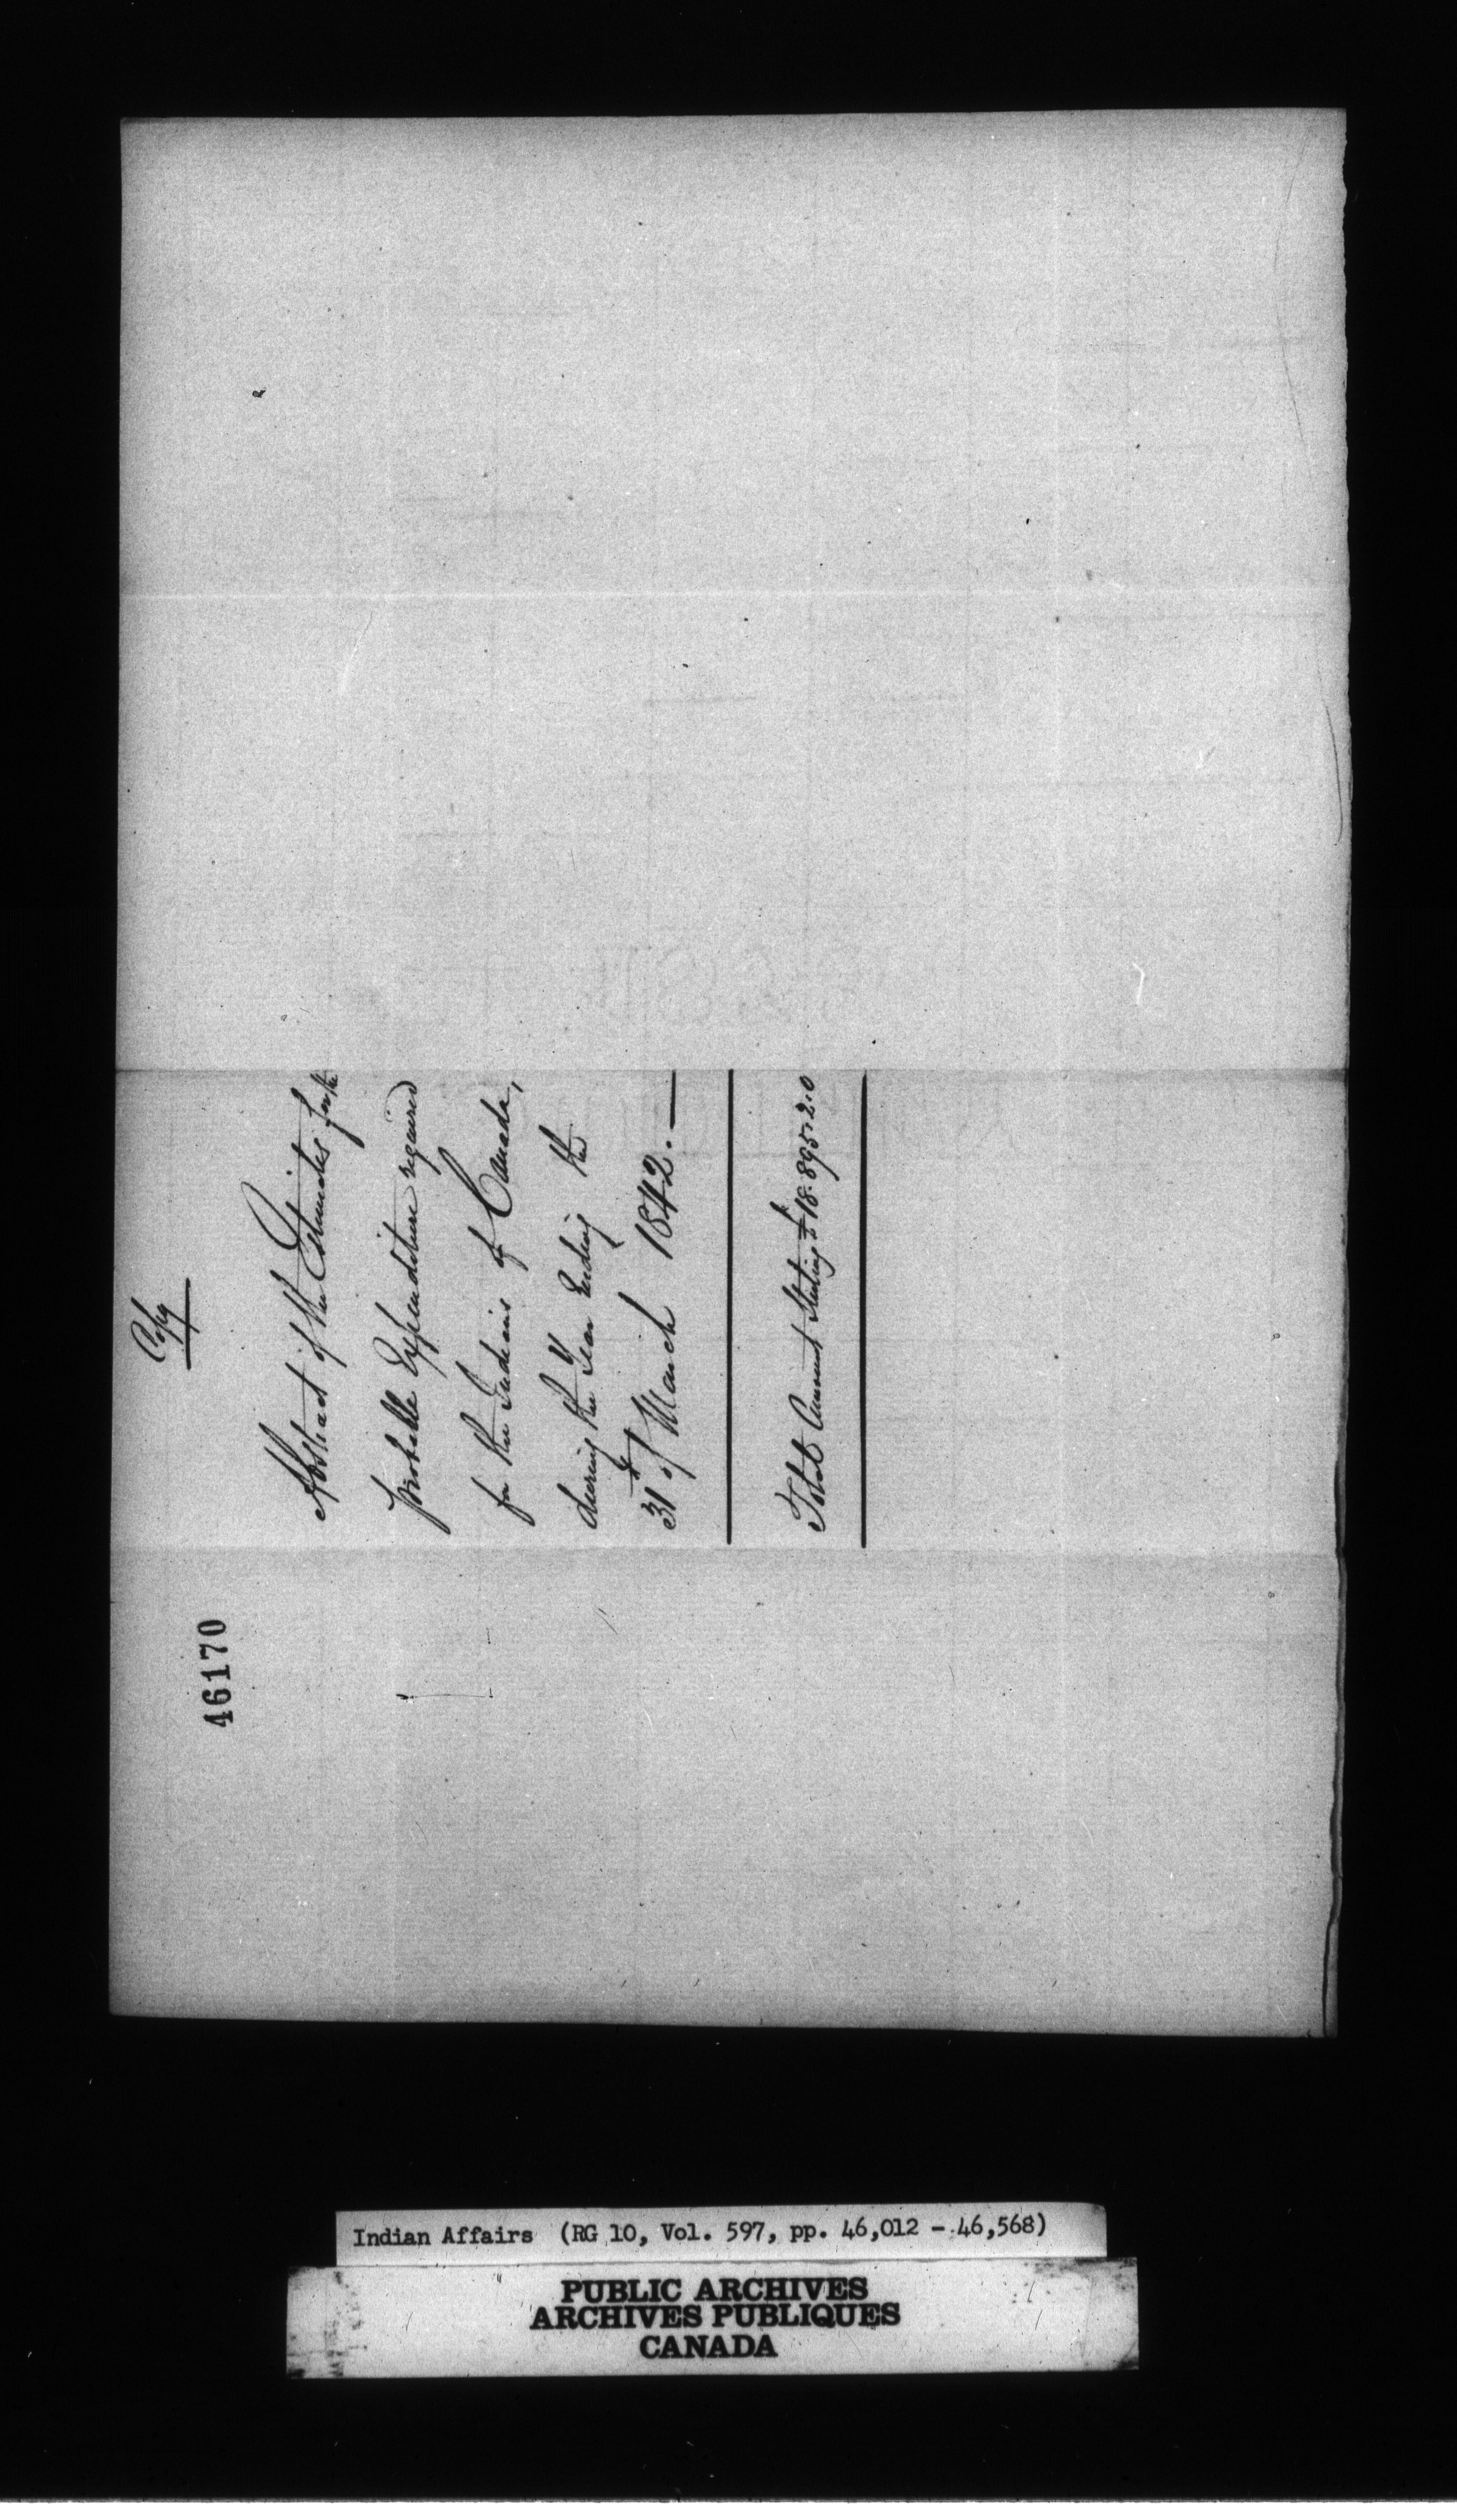 Copy
Abstract of the Estimates for the
probable Expenditure required
for the Indians of Canada,
during the Year Ending the
31st of March 1842.—
Total Amount Sterling £18.895.2.0
46170
Indian Affairs (RG 10, Vol. 597, pp. 46,012 - 46,568)
PUBLIC ARCHIVES
ARCHIVES PUBLIQUES
CANADA